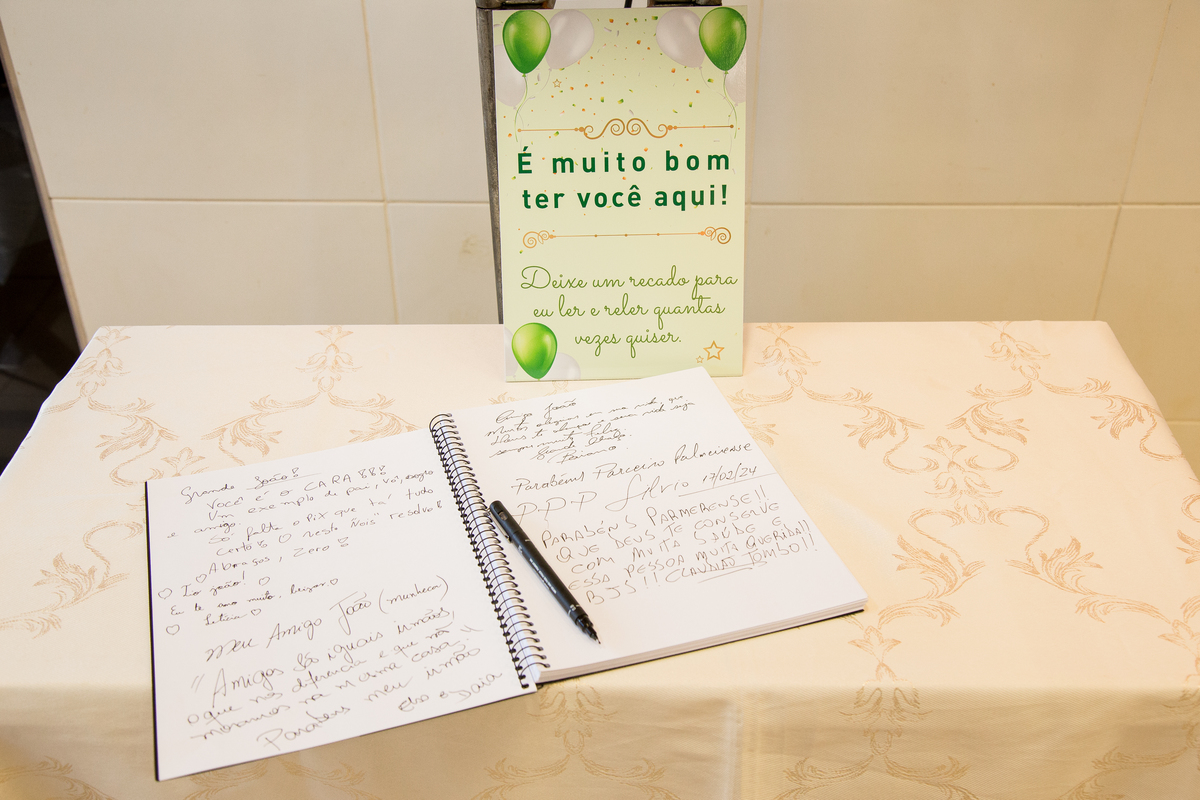 É muito bom
ter você aqui!
Deixe um recado para
eu ler e reler quantas
vezes quiser.
Grande João!
Você é o CARA!!!
Um exemplo de pai, vô,
e amigo
Só falte o PIX que tá tudo
certo! O resto "Nóis" resolve!
Abraços, Zero!
Tio João!
Eu te amo muito.
Letícia
Meu Amigo João (munheca)
"Amigos são iguais irmãos,
o que nos diferencia e que não
moramos na mesma casa"
Parabens meu irmão
Elso e
Amigo João
Muitas em sua vida, que
Deus te abençoe e sua vida seja
sempre muito feliz.
Grande Abraço
Parabens Parceiro Palmeirense
D.P.P Silvio 17/02/24
PARABÉNS PARMERENSE!!
QUE DEUS TE CONSERVE
COM MUITA SAÚDE E
ESSA PESSOA MUITA QUERIDA!!
BJS!! CLAUDIÃO TOMBO!!